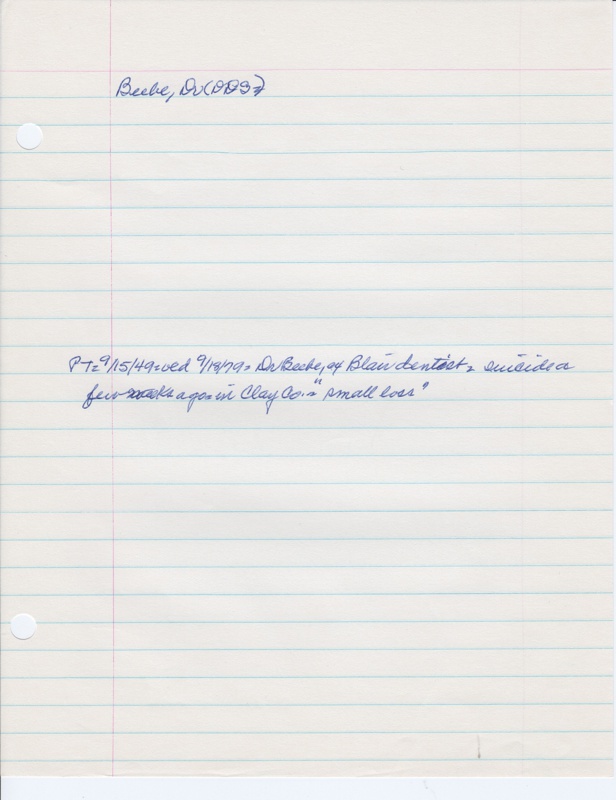 Beebe, Dr (DDS?)
PT = 9/15/49 = wed 9/13/79 = Dr Beebe, ex Blair dentist = suicide a
few weeks ago = in Clay Co. = "small loss"